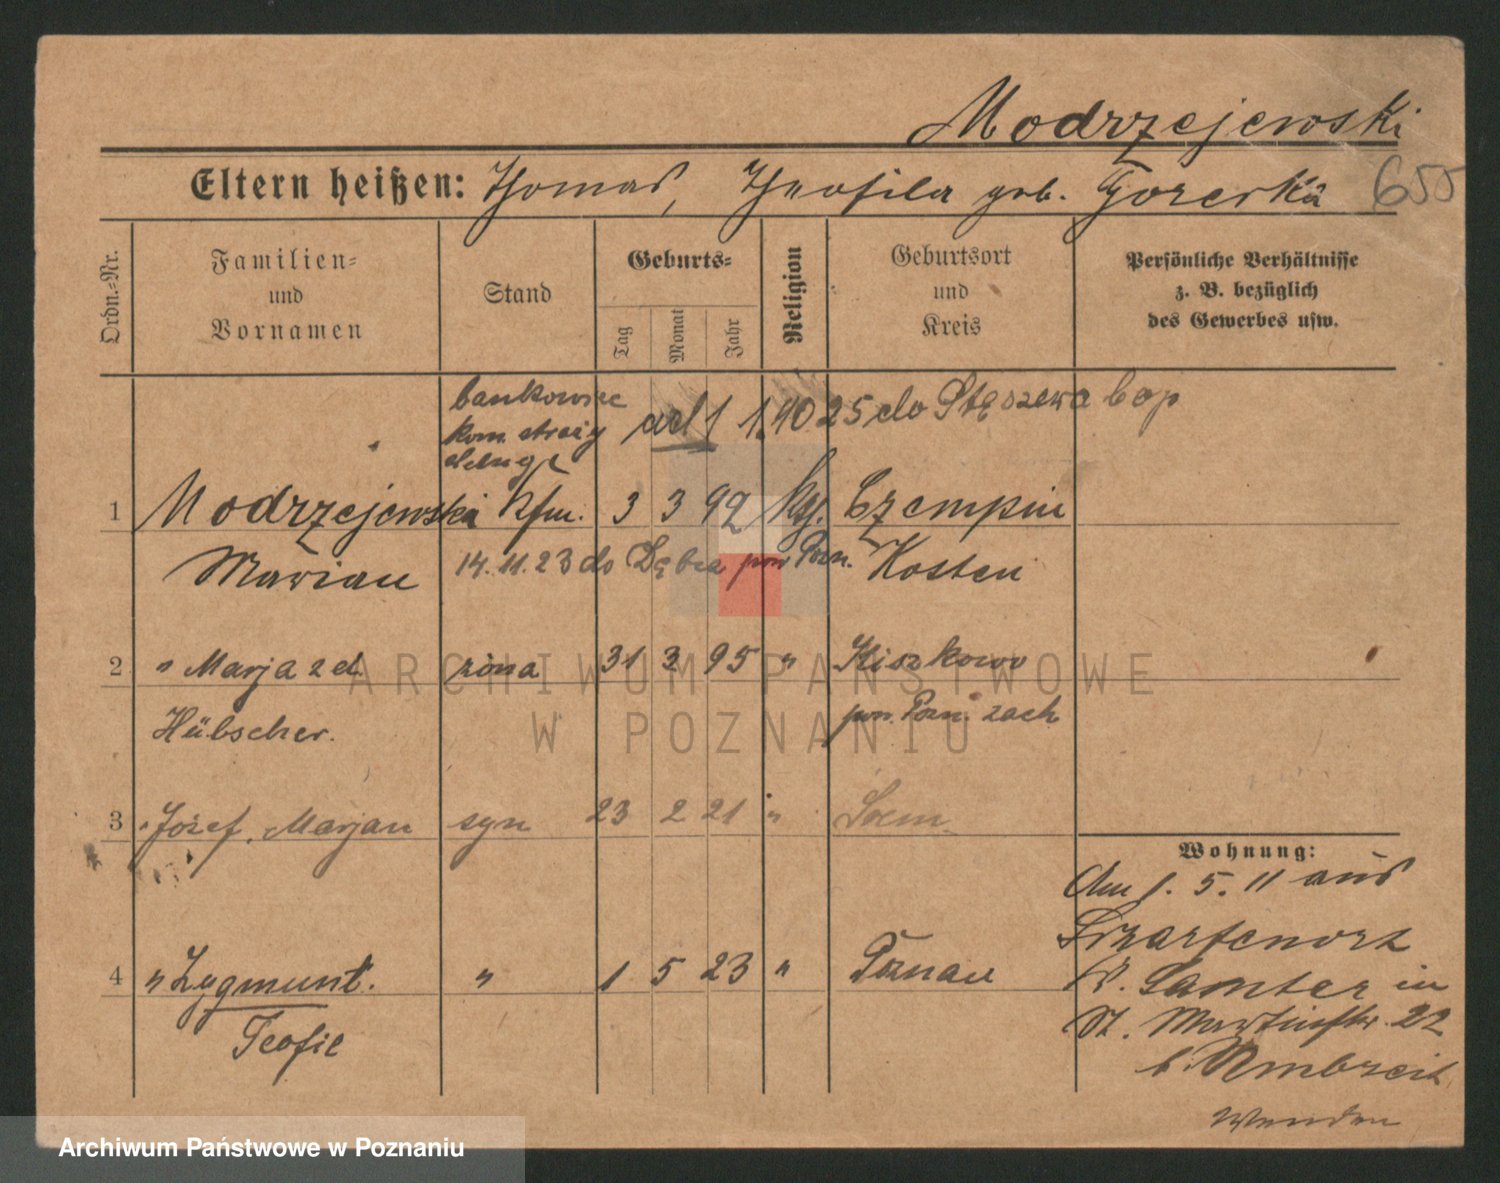 Modrzejewski
Eltern heißen: Thomas, Theofila geb. Gorerska 655
Ordn.=Nr.
Familien=
und
Vornamen
Stand
Geburts=
Tag
Monat
Jahr
Religion
Geburtsort
und
Kreis
Persönliche Verhältnisse
z. B. bezüglich
des Gewerbes usw.
bankowiec
kom. straży
1 1.40 25 do Stęszewa
1 Modrzejewski Kfm. 3 3 92 Czempin
Marian 14.11.23 do Dębca pow Pozn. Kosten
2 " Marja z d. żona 31 3 95 " Kiszkowo
Hübscher. pow. Pozn. zach
3 " Józef, Marjan syn 23 2 21 "
4 " Zygmunt. " 1 5 23 " Poznań
Teofil
Wohnung:
Am 1. 5. 11 aus
K. Samter in
St. Martinstr. 22
b. Umbreit
ARCHIWUM PAŃSTWOWE
W POZNANIU
Archiwum Państwowe w Poznaniu